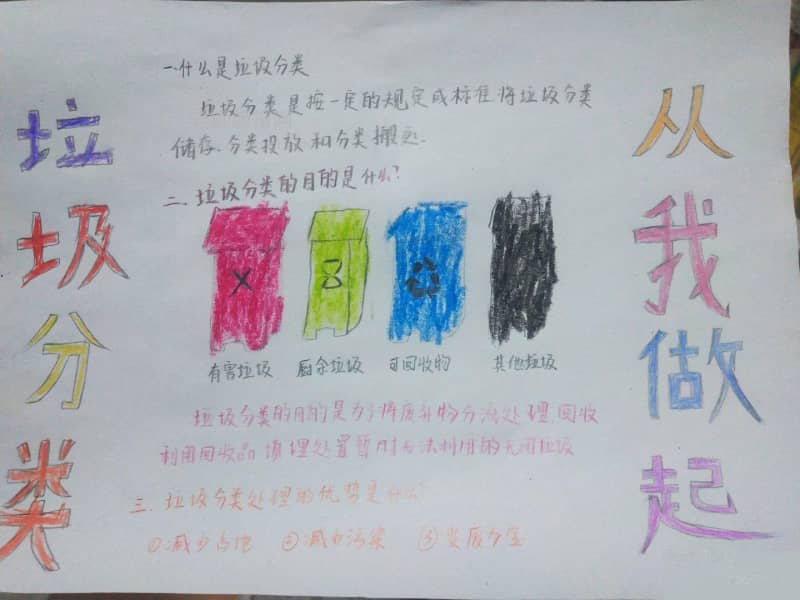 垃圾分类
一.什么是垃圾分类
垃圾分类是按一定的规定或标准将垃圾分类
储存、分类投放和分类搬运.
二、垃圾分类的目的是什么?
有害垃圾 厨余垃圾 可回收物 其他垃圾
垃圾分类的目的是为了将废弃物分流处理,回收
利用回收品 填埋处置暂时无法利用的无用垃圾
三、垃圾分类处理的优势是什么
①减少占地 ②减少污染 ③变废为宝
从我做起